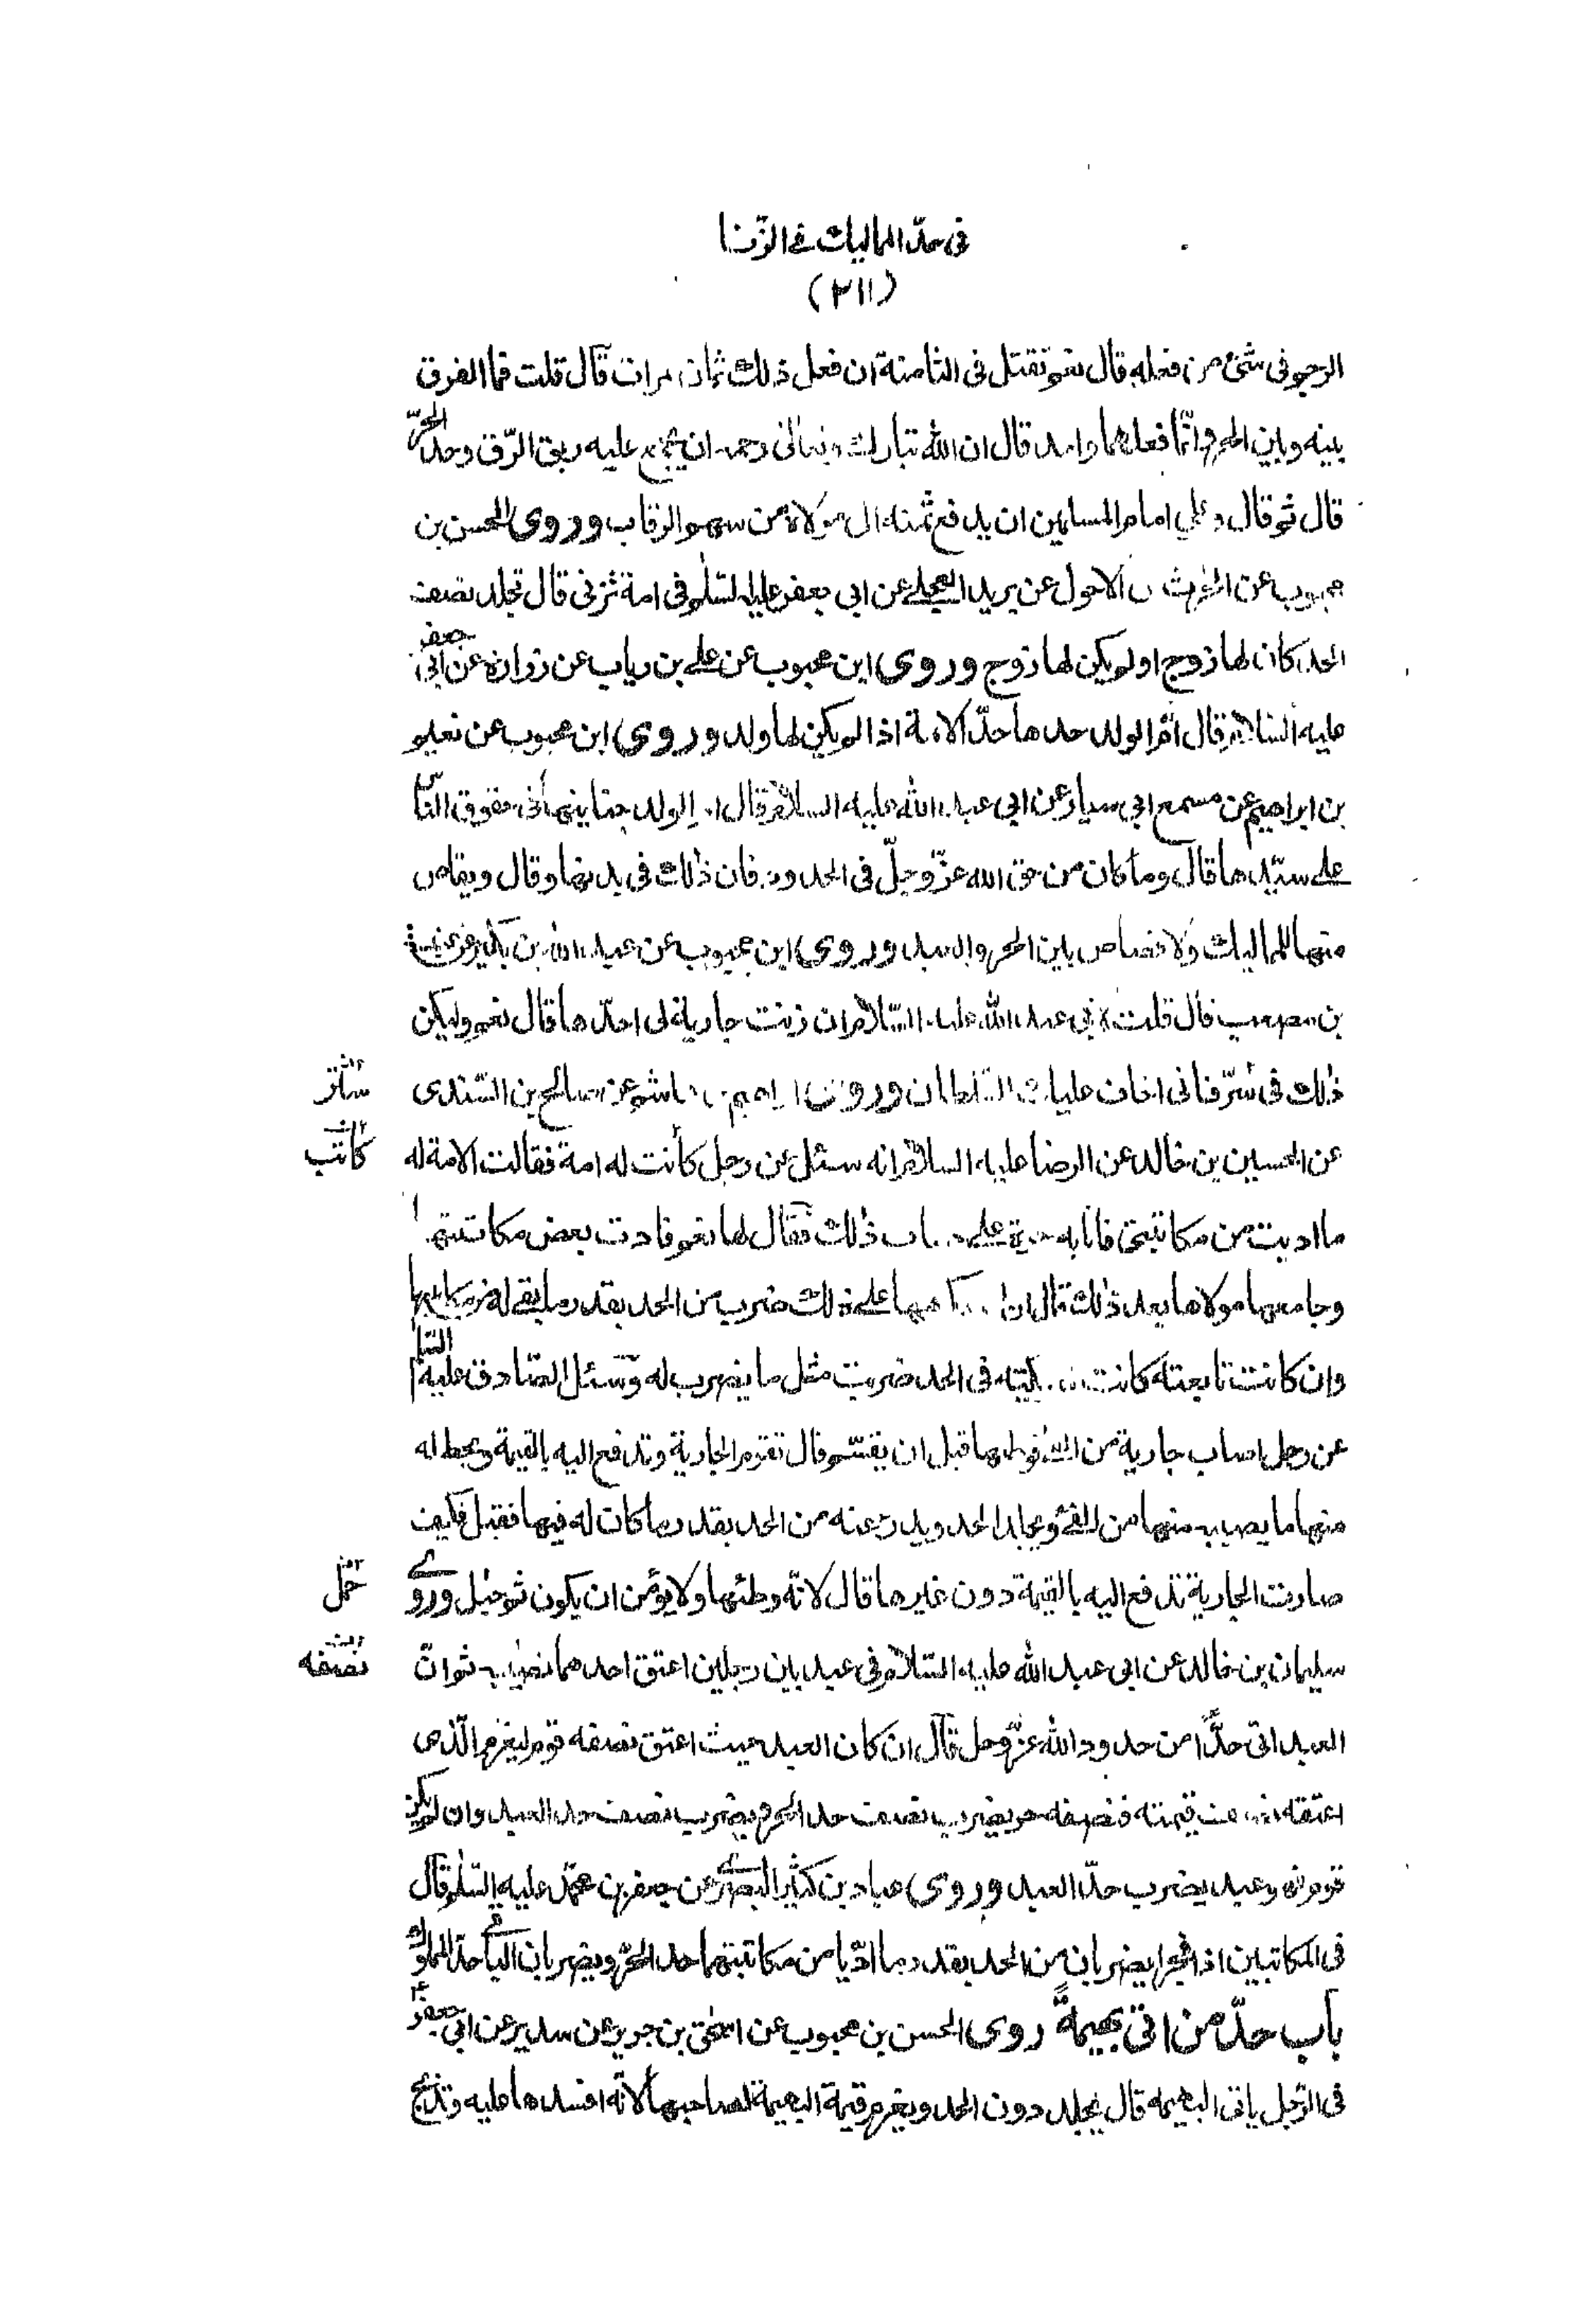 فى حدّ المماليك فى الزّنا
(٢١١)
الرجم فى شئ من فعله قال نعم تقتل فى الثامنة ان فعل ذلك ثمان مرات قال قلت فما الفرق
بينه وبين الحر وانّما فعلهما واحد قال ان الله تبارك وتعالى رحمه ان يجمع عليه ربق الرّق وحد الحرّ
قال ثم قال وعلى امام المسلمين ان يدفع ثمنه الى مولاه من سهم الرقاب وروى الحسن بن
محبوب عن الحرث بن الاحول عن بريد العجلى عن ابى جعفر عليه السّلم فى امة تزنى قال تجلد نصف
الحد كان لها زوج او لم يكن لها زوج وروى ابن محبوب عن على بن رياب عن زرارة عن ابى جعفر
عليه السّلام قال امّ الولد حدها حدّ الامة اذا لم يكن لها ولد وروى ابن محبوب عن نعيم
بن ابراهيم عن مسمع ابى سيار عن ابى عبد الله عليه السلام قال ام الولد جنايتها فى حقوق النّاس
على سيّدها قال وما كان من حق الله عزّ وجلّ فى الحدود فان ذلك فى بدنها وقال ويقاص
منها للمماليك ولا قصاص بين الحر والعبد وروى ابن محبوب عن عبد الله بن بكير عن عنبسة
بن مصعب قال قلت لابى عبد الله عليه السّلام ان زنت جارية لى احدّها قال نعم وليكن
ذلك فى سرّ فانى اخاف عليك السّلطان وروى ابراهيم بن هاشم عن صالح بن السّندى
ساتر
عن الحسين بن خالد عن الرضا عليه السلام انه سئل عن رجل كانت له امة فقالت الامة له
كاتب
ما اديت من مكاتبتى فانا به حرة على حساب ذلك فقال لها نعم فادت بعض مكاتبتها
وجامعها مولاها بعد ذلك قال ان استكرهها على ذلك ضرب من الحد بقدر ما بقى له من مكاتبتها
وان كانت تابعته كانت شريكته فى الحد ضربت مثل ما يضرب له وسئل الصّادق عليه السّلام
عن رجل اصاب جارية من الفئ فوطئها قبل ان يقسّم قال تقوم الجارية وتدفع اليه بالقيمة ويحط له
منها ما يصيبه منها من الفئ ويجلد الحد ويدرء عنه من الحد بقدر ما كان له فيها فقيل فكيف
صارت الجارية تدفع اليه بالقيمة دون غيرها قال لانّه وطئها ولا يؤمن ان يكون ثم حبل وروى
حمل
سليمان بن خالد عن ابى عبد الله عليه السّلام فى عبد بين رجلين اعتق احدهما نصيبه ثم انّ
نصفه
العبد اتى حدًّا من حدود الله عزّ وجل قال ان كان العبد حيث اعتق نصفه قوم ليغرم الّذى
اعتقه نصف قيمته فنصفه حر يضرب نصف حد الحر ويضرب نصف حد العبد وان لم يكن
قوم فهو عبد يضرب حدّ العبد وروى عباد بن كثير البصرى عن جعفر بن محمّد عليه السّلم قال
فى المكاتبين اذا فجرا يضربان من الحد بقدر ما ادّيا من مكاتبتهما حد الحر ويضربان الباقى حدّ المملوك
باب حدّ من اتى بهيمةً روى الحسن بن محبوب عن اسحٰق بن جرير عن سدير عن ابى جعفر ع
فى الرّجل ياتى البهيمه قال يجلد دون الحد ويغرم قيمة البهيمة لصاحبها لانّه افسدها عليه وتذبح